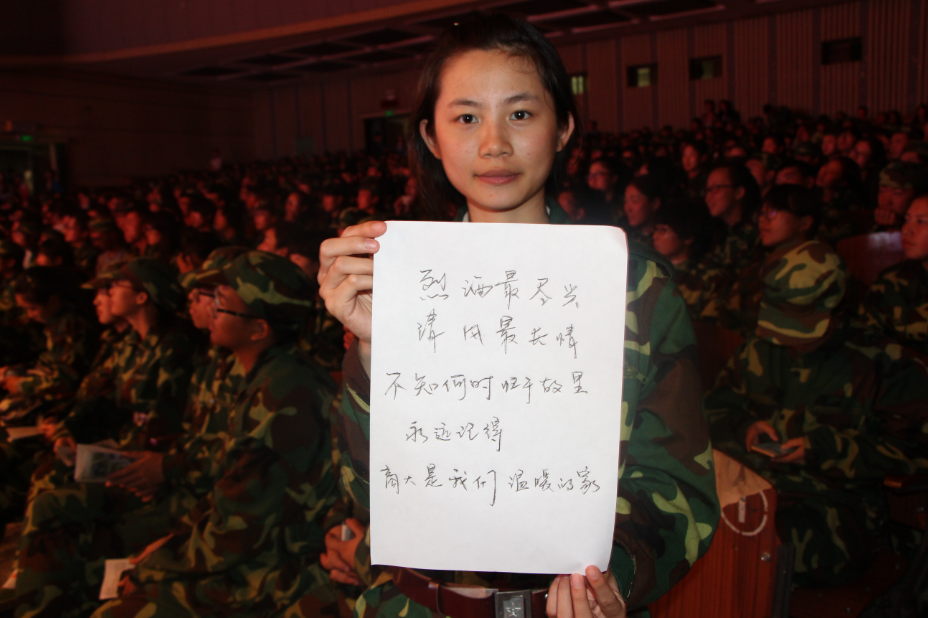 烈酒最尽兴
诗最长情
不知何时归于故里
永远记得
商大是我们温暖的家